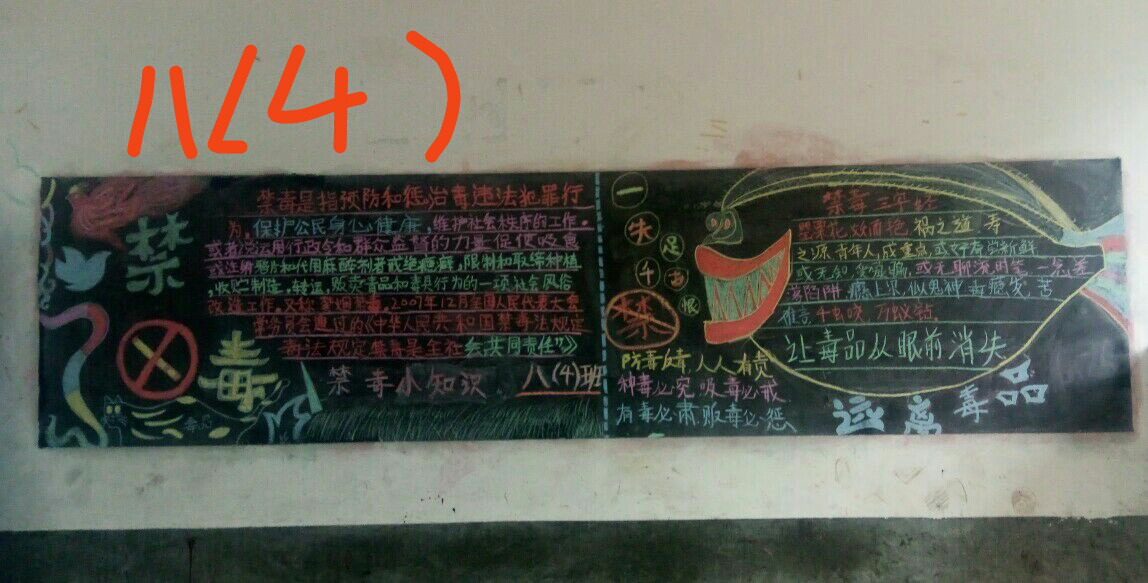 八(4)
禁
毒
禁毒是指预防和惩治毒违法犯罪行
为,保护公民身心健康,维护社会秩序的工作.
或者说运用行政令和群众监督的力量促使吸食
或注射鸦片和代用麻醉剂者戒绝瘾癖,限制和取缔种植
收贮制造,转运,贩卖毒品和毒具行为的一项社会风俗
改造工作.又称禁烟禁毒.2007年12月全国人民代表大会
常务员会通过的《中华人民共和国禁毒法规定
毒法规定禁毒是全社会共同责任”》
禁毒小知识 八(4)班
一失足千古恨
禁
防毒反毒,人人有责
种毒必究 吸毒必戒
有毒必肃.贩毒必惩
禁毒三字经
罂粟花,效面艳 祸之道 毒
之源 青年人,成重点,或好奇,尝新鲜
或无知 或无聊
陷阱 瘾上
难言
让毒品从眼前消失
远离毒品